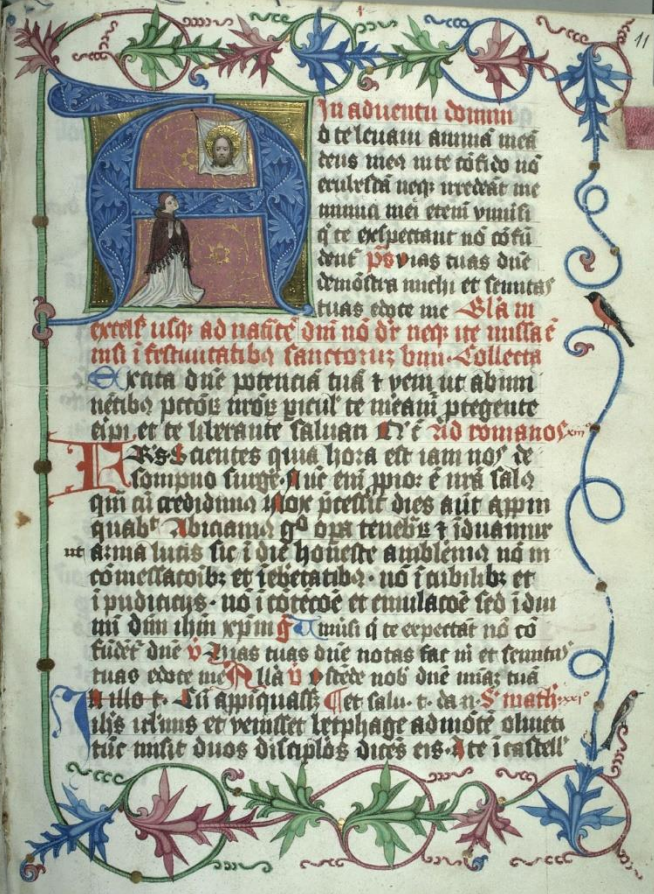 11
In adventu domini
d te levavi animā meā
deus meꝯ in te cōfido nō
erubescā neqꝫ irrideāt me
inimici mei etenī vniūsi
q̄ te exspectant nō cōfū
dent̄ p̄s vias tuas dn̄e
demōstra michi et semitas
tuas edoce me Glā in
excelꝭ usqꝫ ad natīte dm̄ nō dr̄ neqꝫ ite missa ē
nisi ī festiuitatibꝯ sanctoruꝫ vnu Collecta
Excita dn̄e potenciā tuā ⁊ veni ut ab īmī
nētibꝯ pctōꝝ nr̄oꝝ ꝑiculꝭ te meam̄ ꝓtegente
eipi et te liberante saluari Ad romanos xiii
Frs Scientes quia hora est iam nos de
sompno surge Nūc eni ꝓpior ē nr̄a salꝯ
qm̄ cū credidimꝯ Nox p̄cessit dies aūt appīn
quabt Abiciamꝯ gͦ oꝑa tenebꝝ ⁊ īduamur
arma lucis sic ī die honeste ambulemꝯ nō in
ut
cōmessacōibꝫ et ī ebrietatibꝯ nō ī cubilibꝫ et
īpudiciciis nō ī cōtēcōe et emulacōe sed īdui
mī dn̄m ihm̄ xpm̄ g Vniūsi q̄ te expectāt nō cō
fūdēt dn̄e v Vias tuas dn̄e notas fac m̄ et semitas
tuas edoce me Allā v Ostēde nobꝭ dn̄e miāꝫ tuā
In illo t. Cū appīquassꝫ et salu. t. da n. S math. xxi
ihs̄ iherlimis et venisset betphage ad mōtē oliueti
tūc misit duos discipl̄os dicēs eis Ite ī castell̄